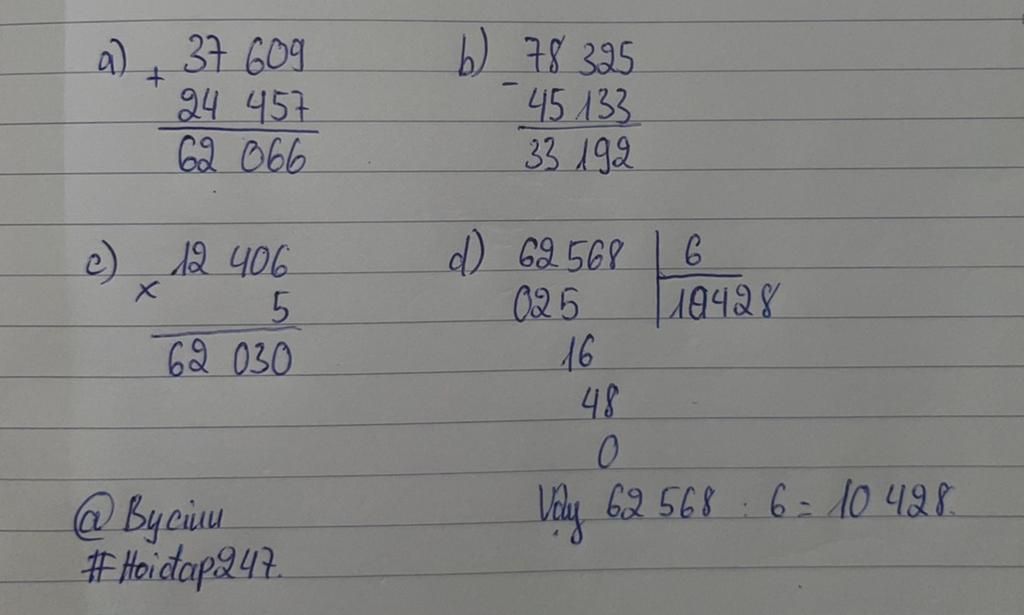 a) + 37 609
24 457
62 066
b) - 78 325
45 133
33 192
c) x 12 406
5
62 030
d) 62 568 | 6
025 | 10428
16
48
0
Vậy 62 568 : 6 = 10 428.
@Byciuu
#Hoidap247.